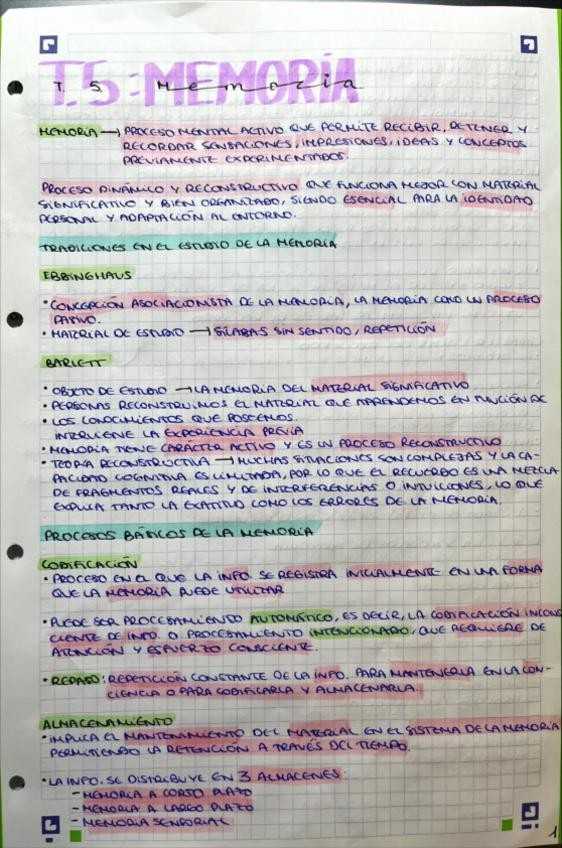 T.5: MEMORÍA
T. 5. Memoria
MEMORIA → PROCESO MENTAL ACTIVO QUE PERMITE RECIBIR, RETENER Y
RECORDAR SENSACIONES, IMPRESIONES, IDEAS Y CONCEPTOS
PREVIAMENTE EXPERIMENTADOS.
PROCESO DINÁMICO Y RECONSTRUCTIVO QUE FUNCIONA MEJOR CON MATERIAL
SIGNIFICATIVO Y BIEN ORGANIZADO, SIENDO ESENCIAL PARA LA IDENTIDAD
PERSONAL Y ADAPTACIÓN AL ENTORNO.
TRADICIONES EN EL ESTUDIO DE LA MEMORIA
EBBINGHAUS
• CONCEPCIÓN ASOCIACIONISTA DE LA MEMORIA, LA MEMORIA COMO UN PROCESO
PASIVO.
• MATERIAL DE ESTUDIO → SÍLABAS SIN SENTIDO, REPETICIÓN
BARLETT
• OBJETO DE ESTUDIO → LA MEMORIA DEL MATERIAL SIGNIFICATIVO
• PERSONAS RECONSTRUIMOS EL MATERIAL QUE APRENDEMOS EN FUNCIÓN DE
• LOS CONOCIMIENTOS QUE POSEEMOS.
INTERVIENE LA EXPERIENCIA PREVIA
• MEMORIA TIENE CARÁCTER ACTIVO Y ES UN PROCESO RECONSTRUCTIVO
• TEORÍA RECONSTRUCTIVA → MUCHAS SITUACIONES SON COMPLEJAS Y LA CA-
PACIDAD COGNITIVA ES LIMITADA, POR LO QUE EL RECUERDO ES UNA MEZCLA
DE FRAGMENTOS REALES Y DE INTERFERENCIAS O INTUICIONES, LO QUE
EXPLICA TANTO LA EXATITUD COMO LOS ERRORES DE LA MEMORIA.
PROCESOS BÁSICOS DE LA MEMORIA
CODIFICACIÓN
• PROCESO EN EL QUE LA INFO. SE REGISTRA INICIALMENTE EN UNA FORMA
QUE LA MEMORIA PUEDE UTILIZAR
• PUEDE SER PROCESAMIENTO AUTOMÁTICO, ES DECIR, LA CODIFICACIÓN INCONS
CIENTE DE INFO. O PROCESAMIENTO INTENCIONADO, QUE REQUIERE DE
ATENCIÓN Y ESFUERZO CONSCIENTE.
• REPASO: REPETICIÓN CONSTANTE DE LA INFO. PARA MANTENERLA EN LA CON-
CIENCIA O PARA CODIFICARLA Y ALMACENARLA.
ALMACENAMIENTO
• IMPLICA EL MANTENIMIENTO DEL MATERIAL EN EL SISTEMA DE LA MEMORIA
PERMITIENDO LA RETENCIÓN A TRAVÉS DEL TIEMPO.
• LA INFO. SE DISTRIBUYE EN 3 ALMACENES:
- MEMORIA A CORTO PLAZO
- MEMORIA A LARGO PLAZO
- MEMORIA SENSORIAL
1